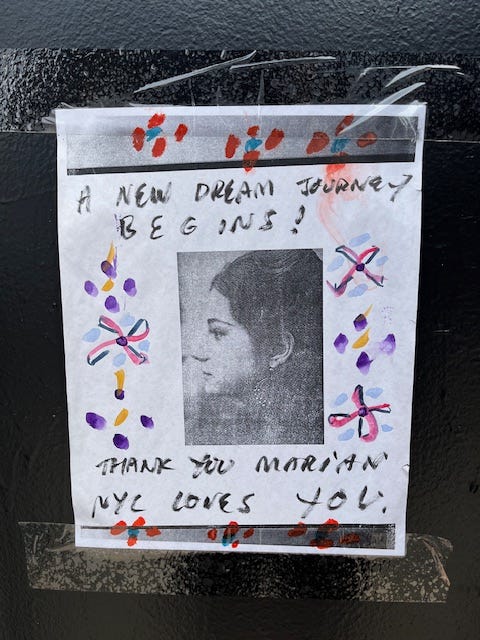 A NEW DREAM JOURNEY
BEGINS!
THANK YOU MARIAN
NYC LOVES YOU.